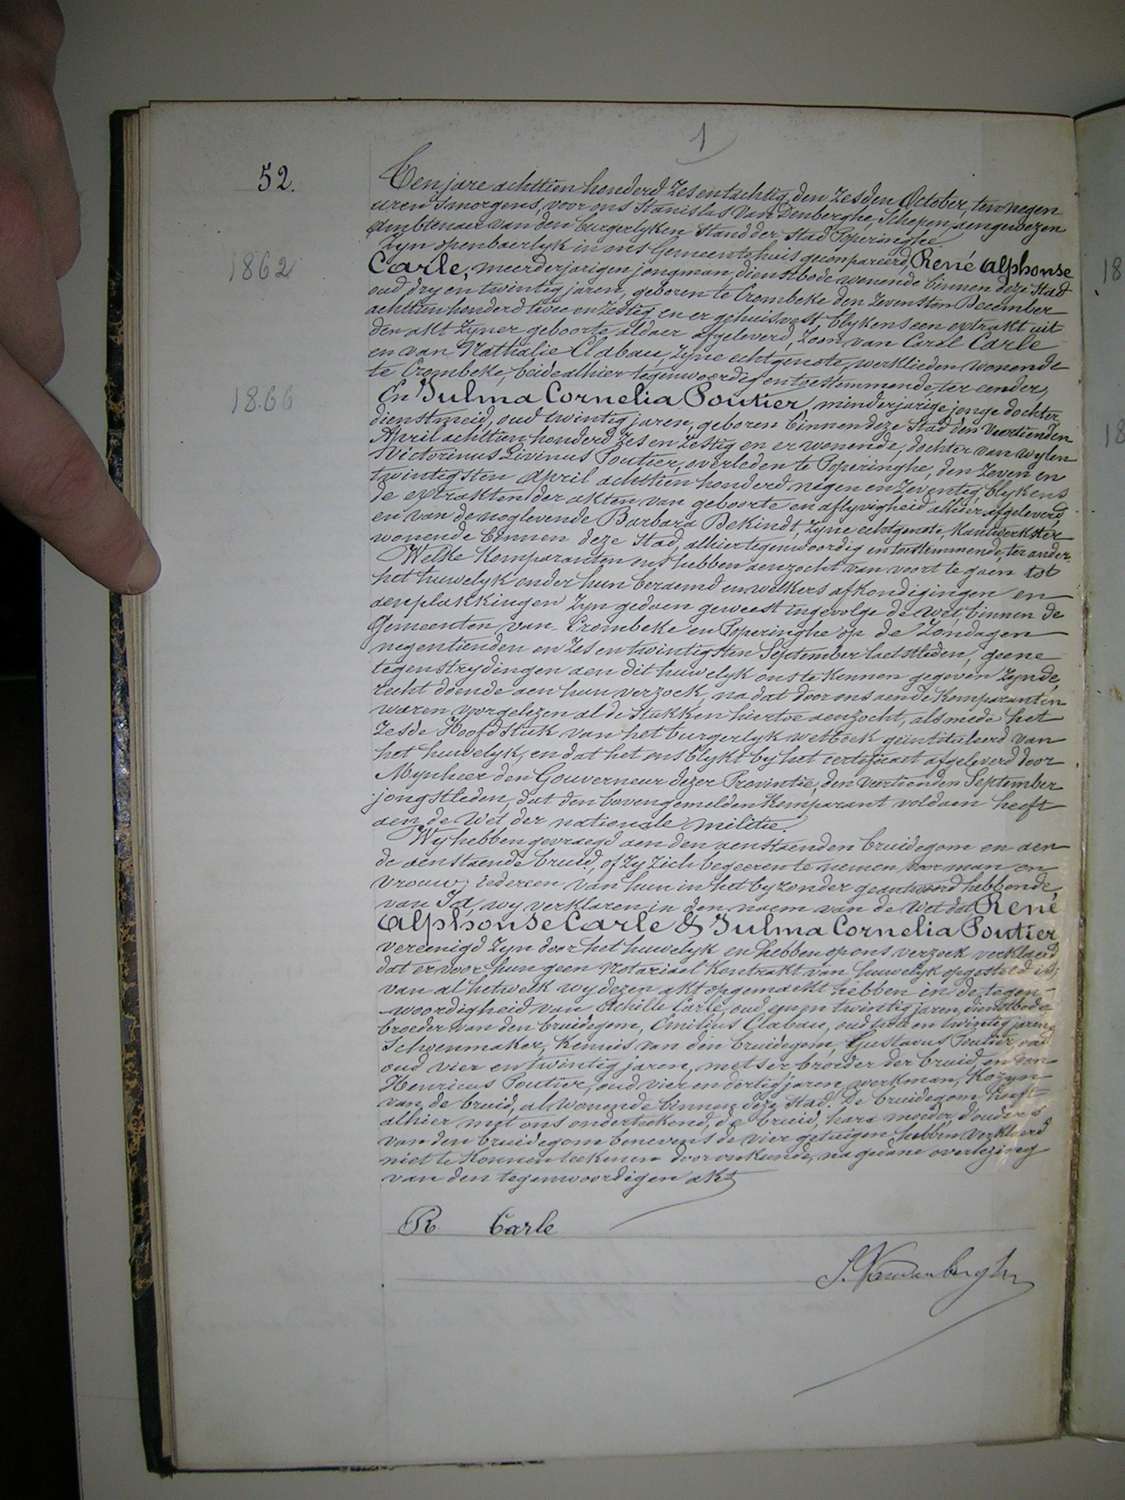 1
52.
Ten jare achttien honderd zes en tachtig, den zesden October, ten negen
uren smorgens, voor ons Stanislas Van Denberghe, Schepen aengewezen
Ambtenaer van den burgerlyken stand der stad Poperinghe
Zyn openbaerlyk in ons Gemeentehuis gecompareerd, René Alphonse
1862
18
Carle, meerderjarigen jongman, dienstbode wonende binnen deze stad
oud dry en twintig jaren, geboren te Crombeke den zevensten December
achttien honderd twee en zestig en er gehuisvest blykens een extrakt uit
den akt zyner geboorte aldaer afgeleverd, zoon van Carel Carle
en van Nathalie Clabau, zyne echtgenote, werklieden wonende
te Crombeke, beide alhier tegenwoordig en toestemmende, ter eender,
1866
18
En Julma Cornelia Poutier, minderjarige jonge dochter,
dienstmeid, oud twintig jaren, geboren binnen deze stad den veertienden
April achttien honderd zes en zestig en er wonende, dochter van wylen
Victorinus Livinus Poutier, overleden te Poperinghe, den zeven en
twintigsten April achttien honderd negen en zeventig, blykens
de extrakten der akten van geboorte en aflyvigheid alhier afgeleverd
en van de noglevende Barbara Dekindt, zyne echtgenote, kantwerkster
wonende binnen deze stad, alhier tegenwoordig en toestemmende, ter ander.
Welke Komparanten ons hebben aenzocht van voort te gaen tot
het huwelyk onder hun beraemd en welkers afkondigingen en
aenplakkingen zyn gedaen geweest ingevolge de wet, binnen de
Gemeenten van Crombeke en Poperinghe op de Zondagen
negentienden en zes en twintigsten September laetstleden, geene
tegenstrydingen aen dit huwelyk ons te kennen gegeven zynde,
recht doende aen hun verzoek, na dat door ons aende Komparanten
waren voorgelezen al de stukken hiertoe aenzocht, als mede het
Zesde Hoofdstuk van het burgerlyk wetboek geintituleerd van
het huwelyk, en dat het ons blykt by het certificaet afgeleverd door
Mynheer den Gouverneur dezer Provintie, den veertienden September
jongstleden, dat den bovengemelden Komparant voldaen heeft
aen de Wet der nationale militie.
Wy hebben gevraegd aen den aenstaenden bruidegom en aen
de aenstaende bruid, of zy zich begeeren te nemen voor man en
vrouw, iedereen van hun in het byzonder geantwoord hebbende
van Ja, wy verklaren in den naem van de Wet dat René
Alphonse Carle & Julma Cornelia Poutier
vereenigd zyn door het huwelyk en hebben op ons verzoek verklaerd
dat er voor hun geen Notariael Kontrakt van huwelyk opgesteld is;
van al hetwelk wy dezen akt opgemaekt hebben in de tegen-
woordigheid van Achille Carle, oud een en twintig jaren, dienstbode
broeder van den bruidegom, Emilius Clabau, oud en twintig jaren
Schoenmaker, kennis van den bruidegom, Gustavus Poutier,
oud vier en twintig jaren, metser broeder der bruid, en van
Henricus Poutier, oud vier en dertig jaren, werkman, Kozyn
van de bruid, al wonende binnen deze stad. De bruidegom heeft
alhier met ons onderteekend, de bruid, hare moeder, d'ouders
van den bruidegom benevens de vier getuigen hebben verklaerd
niet te konnen teekenen door onkunde, na gedane overlezing
van den tegenwoordigen akt
R Carle
S. Vandenberghe